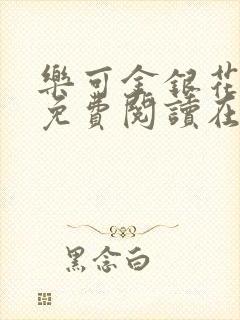 樂可金銀花
免費閱讀在
黑念白